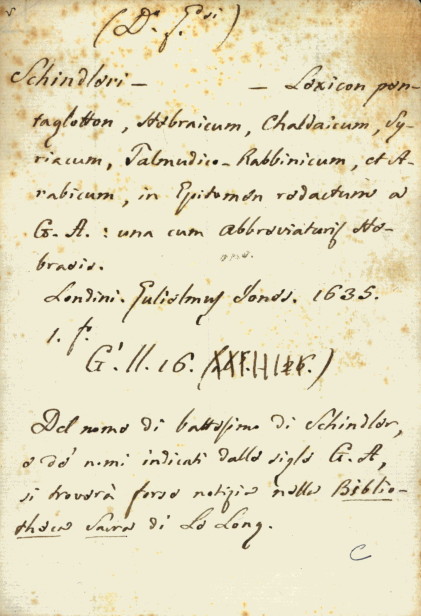 (Dr. f.)
Schindleri – – Lexicon pen-
taglotton, Hebraicum, Chaldaicum, Sy-
riacum, Talmudico-Rabbinicum, et A-
rabicum, in Epitomen redactum a
G. A. : una cum Abbreviaturis He-
braeis.
Londini. Gulielmus Jones. 1635.
1. f.
G'. II. 16. (XXF.
Del nome di battesimo di Schindler,
e de' nomi indicati dalle sigle G. A,
si troverà forse notizia nella Biblio-
theca Sacra di Le Long.
C